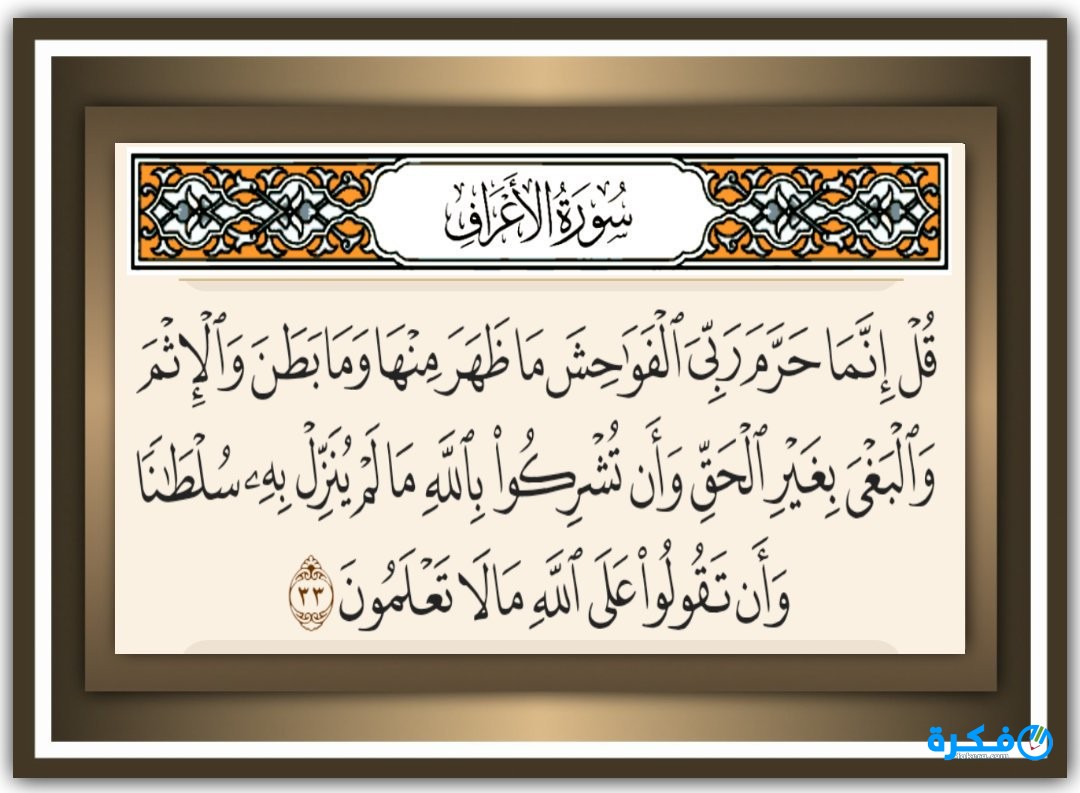 سُورَةُ الأَعْرَافِ
قُلْ إِنَّمَا حَرَّمَ رَبِّىَ ٱلْفَوَٰحِشَ مَا ظَهَرَ مِنْهَا وَمَا بَطَنَ وَٱلْإِثْمَ
وَٱلْبَغْىَ بِغَيْرِ ٱلْحَقِّ وَأَن تُشْرِكُوا۟ بِٱللَّهِ مَا لَمْ يُنَزِّلْ بِهِۦ سُلْطَٰنًا
وَأَن تَقُولُوا۟ عَلَى ٱللَّهِ مَا لَا تَعْلَمُونَ ٣٣
فكرة